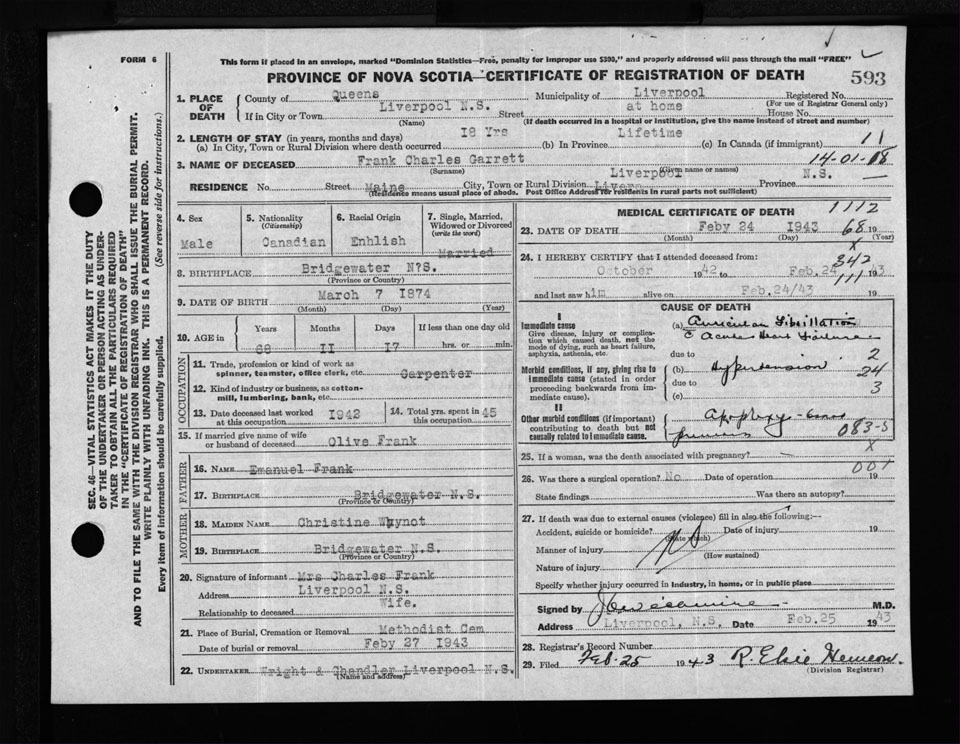 FORM 6
This form if placed in an envelope, marked "Dominion Statistics—Free, penalty for improper use $300," and properly addressed will pass through the mail "FREE"
PROVINCE OF NOVA SCOTIA—CERTIFICATE OF REGISTRATION OF DEATH
593
SEC. 46—VITAL STATISTICS ACT MAKES IT THE DUTY
OF THE UNDERTAKER OR PERSON ACTING AS UNDER-
TAKER TO OBTAIN ALL THE PARTICULARS REQUIRED
IN THE "CERTIFICATE OF REGISTRATION OF DEATH"
AND TO FILE THE SAME WITH THE DIVISION REGISTRAR WHO SHALL ISSUE THE BURIAL PERMIT.
WRITE PLAINLY WITH UNFADING INK. THIS IS A PERMANENT RECORD.
Every item of information should be carefully supplied. (See reverse side for instructions.)
1. PLACE OF DEATH County of Queens Municipality of Liverpool Registered No.
(For use of Registrar General only)
If in City or Town Liverpool N.S. Street at home House No.
(Name) (If death occurred in a hospital or institution, give the name instead of street and number)
2. LENGTH OF STAY (in years, months and days)
(a) In City, Town or Rural Division where death occurred I8 Yrs (b) In Province Lifetime (c) In Canada (if immigrant) 11
3. NAME OF DECEASED Frank Charles Garrett 14-01-18
(Surname) (Given name or names)
RESIDENCE No. Street Maine City, Town or Rural Division Liverpool Province N.S.
(Residence means usual place of abode. Post Office Address for residents in rural parts not sufficient)
4. Sex Male
5. Nationality (Citizenship) Canadian
6. Racial Origin Enhlish
7. Single, Married, Widowed or Divorced (write the word) Married
8. BIRTHPLACE Bridgewater N?S.
(Province or Country)
9. DATE OF BIRTH March 7 I874
(Month) (Day) (Year)
10. AGE in Years 68 Months II Days I7 If less than one day old hrs. or min.
OCCUPATION
11. Trade, profession or kind of work as spinner, teamster, office clerk, etc. Carpenter
12. Kind of industry or business, as cotton-mill, lumbering, bank, etc.
13. Date deceased last worked at this occupation I942
14. Total yrs. spent in this occupation 45
15. If married give name of wife or husband of deceased Olive Frank
FATHER
16. NAME Emanuel Frank
17. BIRTHPLACE Bridgewater N.S.
(Province or Country)
MOTHER
18. MAIDEN NAME Christine Whynot
19. BIRTHPLACE Bridgewater N.S.
(Province or Country)
20. Signature of informant Mrs Charles Frank
Address Liverpool N.S.
Relationship to deceased Wife.
21. Place of Burial, Cremation or Removal Methodist Cem
Date of burial or removal Feby 27 I943
22. UNDERTAKER Wright & Chandler Liverpool N.S.
(Name and address)
MEDICAL CERTIFICATE OF DEATH 1112
23. DATE OF DEATH Feby 24 I943 68 19
(Month) (Day) (Year)
X
24. I HEREBY CERTIFY that I attended deceased from: 342
October 19 42 to Feb. 24 19 43
111
and last saw him alive on Feb.24/43 19
CAUSE OF DEATH
I
Immediate cause
Give disease, injury or complication which caused death, not the mode of dying, such as heart failure, asphyxia, asthenia, etc.
(a) Auricular Fibrillation
c Acute Heart Failure
due to 2
Morbid conditions, if any, giving rise to immediate cause (stated in order proceeding backwards from immediate cause).
(b) Hypertension 24
due to 3
(c)
II
Other morbid conditions (if important) contributing to death but not causally related to immediate cause.
Apoplexy
083-5
25. If a woman, was the death associated with pregnancy? X
001
26. Was there a surgical operation? No Date of operation 19
State findings Was there an autopsy?
27. If death was due to external causes (violence) fill in also the following:—
Accident, suicide or homicide? Date of injury 19
(State which)
Manner of injury No
(How sustained)
Nature of injury
Specify whether injury occurred in industry, in home, or in public place
Signed by M.D.
Address Liverpool, N.S. Date Feb.25 19 43
28. Registrar's Record Number
29. Filed Feb. 25 19 43
(Division Registrar)